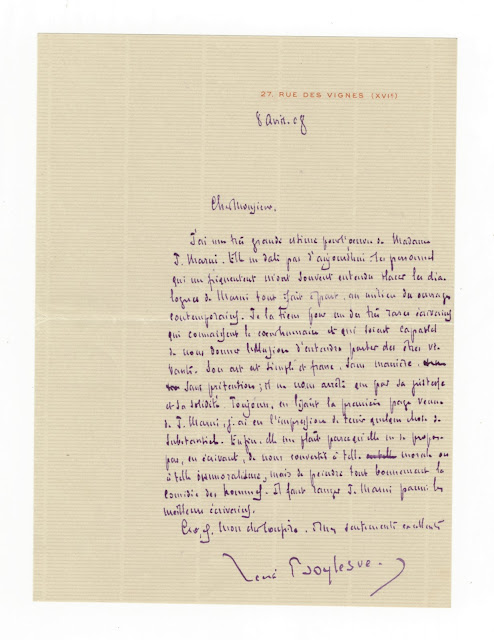 27, RUE DES VIGNES (XVIe)
8 avril. 08
Cher Monsieur,
J'ai une très grande estime pour l'œuvre de Madame
J. Marni. Elle ne date pas d'aujourd'hui. Les personnes
qui me fréquentent m'ont souvent entendu placer les dia-
logues de Marni tout à fait à part, au milieu des ouvrages
contemporains. Je la tiens pour un des très rares écrivains
qui connaissent le cœur humain et qui soient capables
de nous donner l'illusion d'entendre parler des êtres vi-
vants. Son art est simple et franc, sans manière,
sans prétention ; il ne nous arrête que par sa justesse
et sa solidité. Toujours, en lisant la première page venue
de J. Marni, j'ai eu l'impression de tenir quelque chose de
substantiel. Enfin, elle me plaît parce qu'elle ne se propose
pas, en écrivant, de nous convertir à telle morale ou
à telle immoralisme, mais de peindre tout bonnement la
comédie des hommes. Il faut ranger J. Marni parmi les
meilleurs écrivains.
Croyez, mon cher confrère, à mes sentiments excellents
René Boylesve